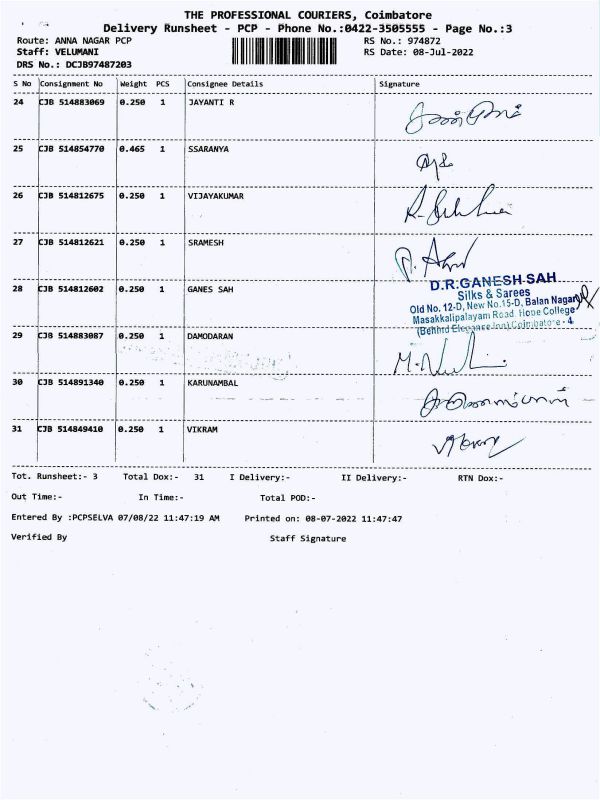 THE PROFESSIONAL COURIERS, Coimbatore
Delivery Runsheet - PCP - Phone No.:0422-3505555 - Page No.:3
Route: ANNA NAGAR PCP RS No.: 974872
Staff: VELUMANI RS Date: 08-Jul-2022
DRS No.: DCJB97487203
S No Consignment No Weight PCS Consignee Details Signature
24 CJB 514883069 0.250 1 JAYANTI R
25 CJB 514854770 0.465 1 SSARANYA
26 CJB 514812675 0.250 1 VIJAYAKUMAR
27 CJB 514812621 0.250 1 SRAMESH
28 CJB 514812602 0.250 1 GANES SAH
D.R.GANESH SAH
Silks & Sarees
Old No. 12-D, New No.15-D, Balan Nagar
Masakkalipalayam Road, Hope College
(Behind Elegance Inn) Coimbatore - 4
29 CJB 514883087 0.250 1 DAMODARAN
30 CJB 514891340 0.250 1 KARUNAMBAL
31 CJB 514849410 0.250 1 VIKRAM
Tot. Runsheet:- 3 Total Dox:- 31 I Delivery:- II Delivery:- RTN Dox:-
Out Time:- In Time:- Total POD:-
Entered By :PCPSELVA 07/08/22 11:47:19 AM Printed on: 08-07-2022 11:47:47
Verified By Staff Signature